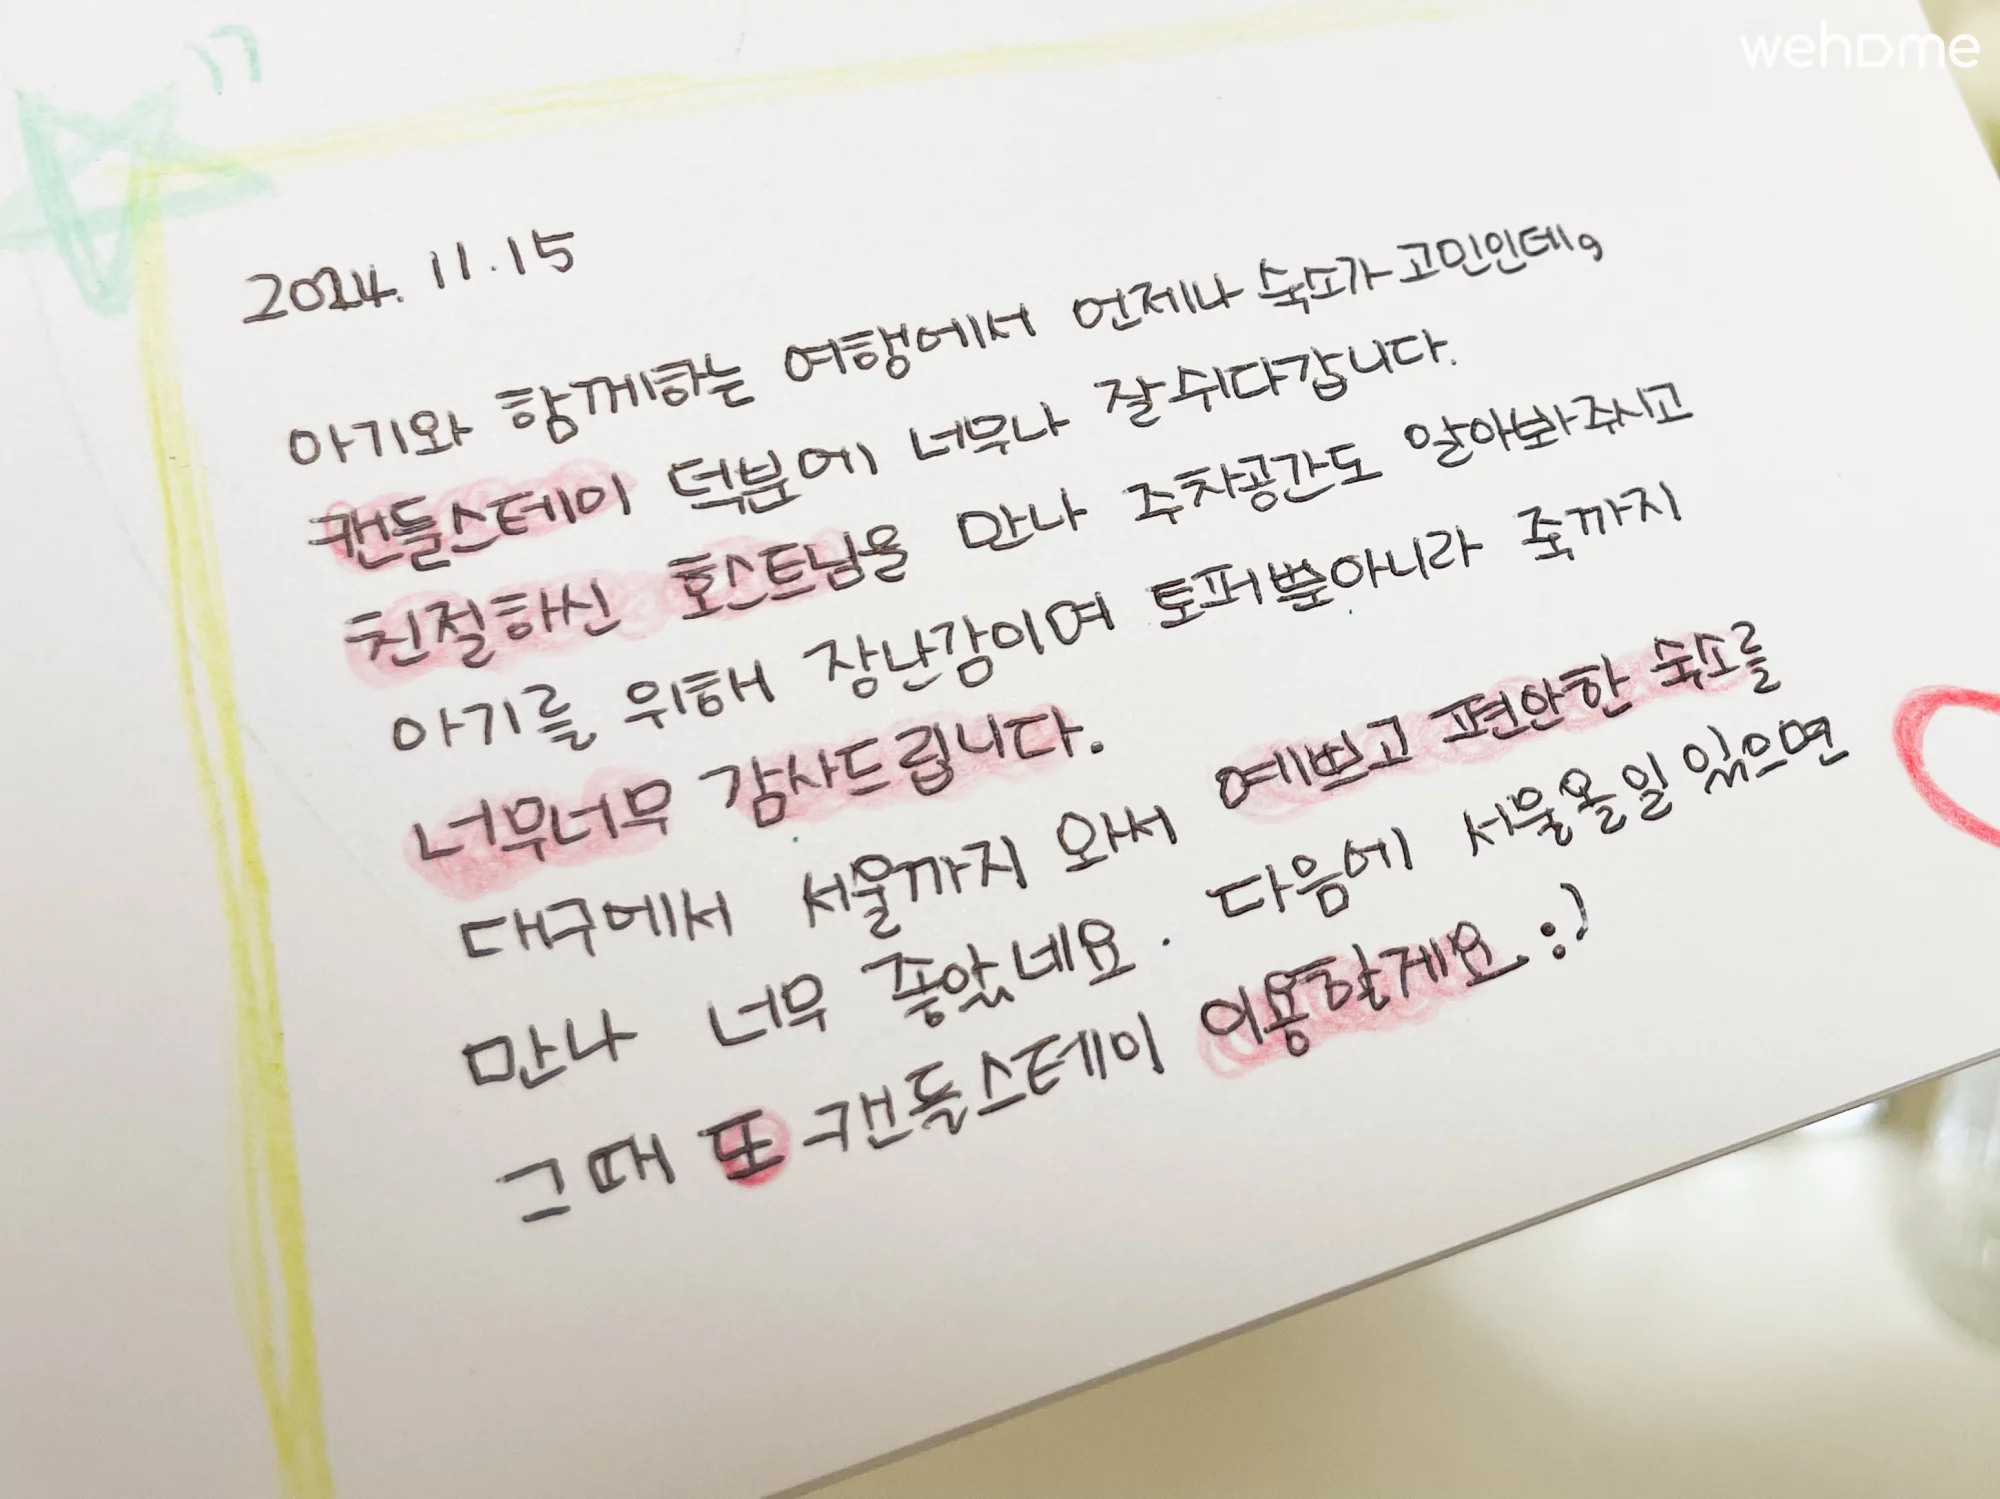 wehome
2024. 11. 15
아기와 함께하는 여행에서 언제나 숙소가 고민인데,
캔들스테이 덕분에 너무나 잘 쉬다갑니다.
친절하신 호스트님을 만나 주차공간도 알아봐주시고
아기를 위해 장난감이며 토퍼뿐아니라 죽까지
너무너무 감사드립니다.
대구에서 서울까지 와서 예쁘고 편안한 숙소를
만나 너무 좋았네요. 다음에 서울올일 있으면
그때 또 캔들스테이 이용할게요. :)